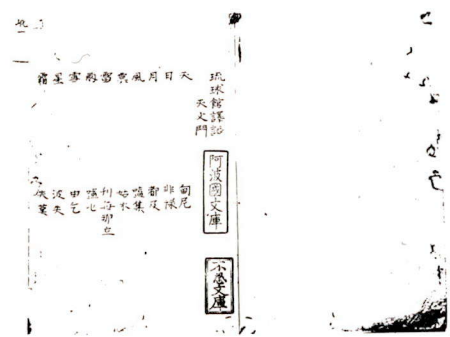 琉球館譯語
天文門
阿波國文庫
不忍文庫
天 甸尼
日 非祿
月 都及
風 嗑集
雲 姑木
雷 刊每那立
嗑乜
雪 由乞
星 波失
霜 失莫